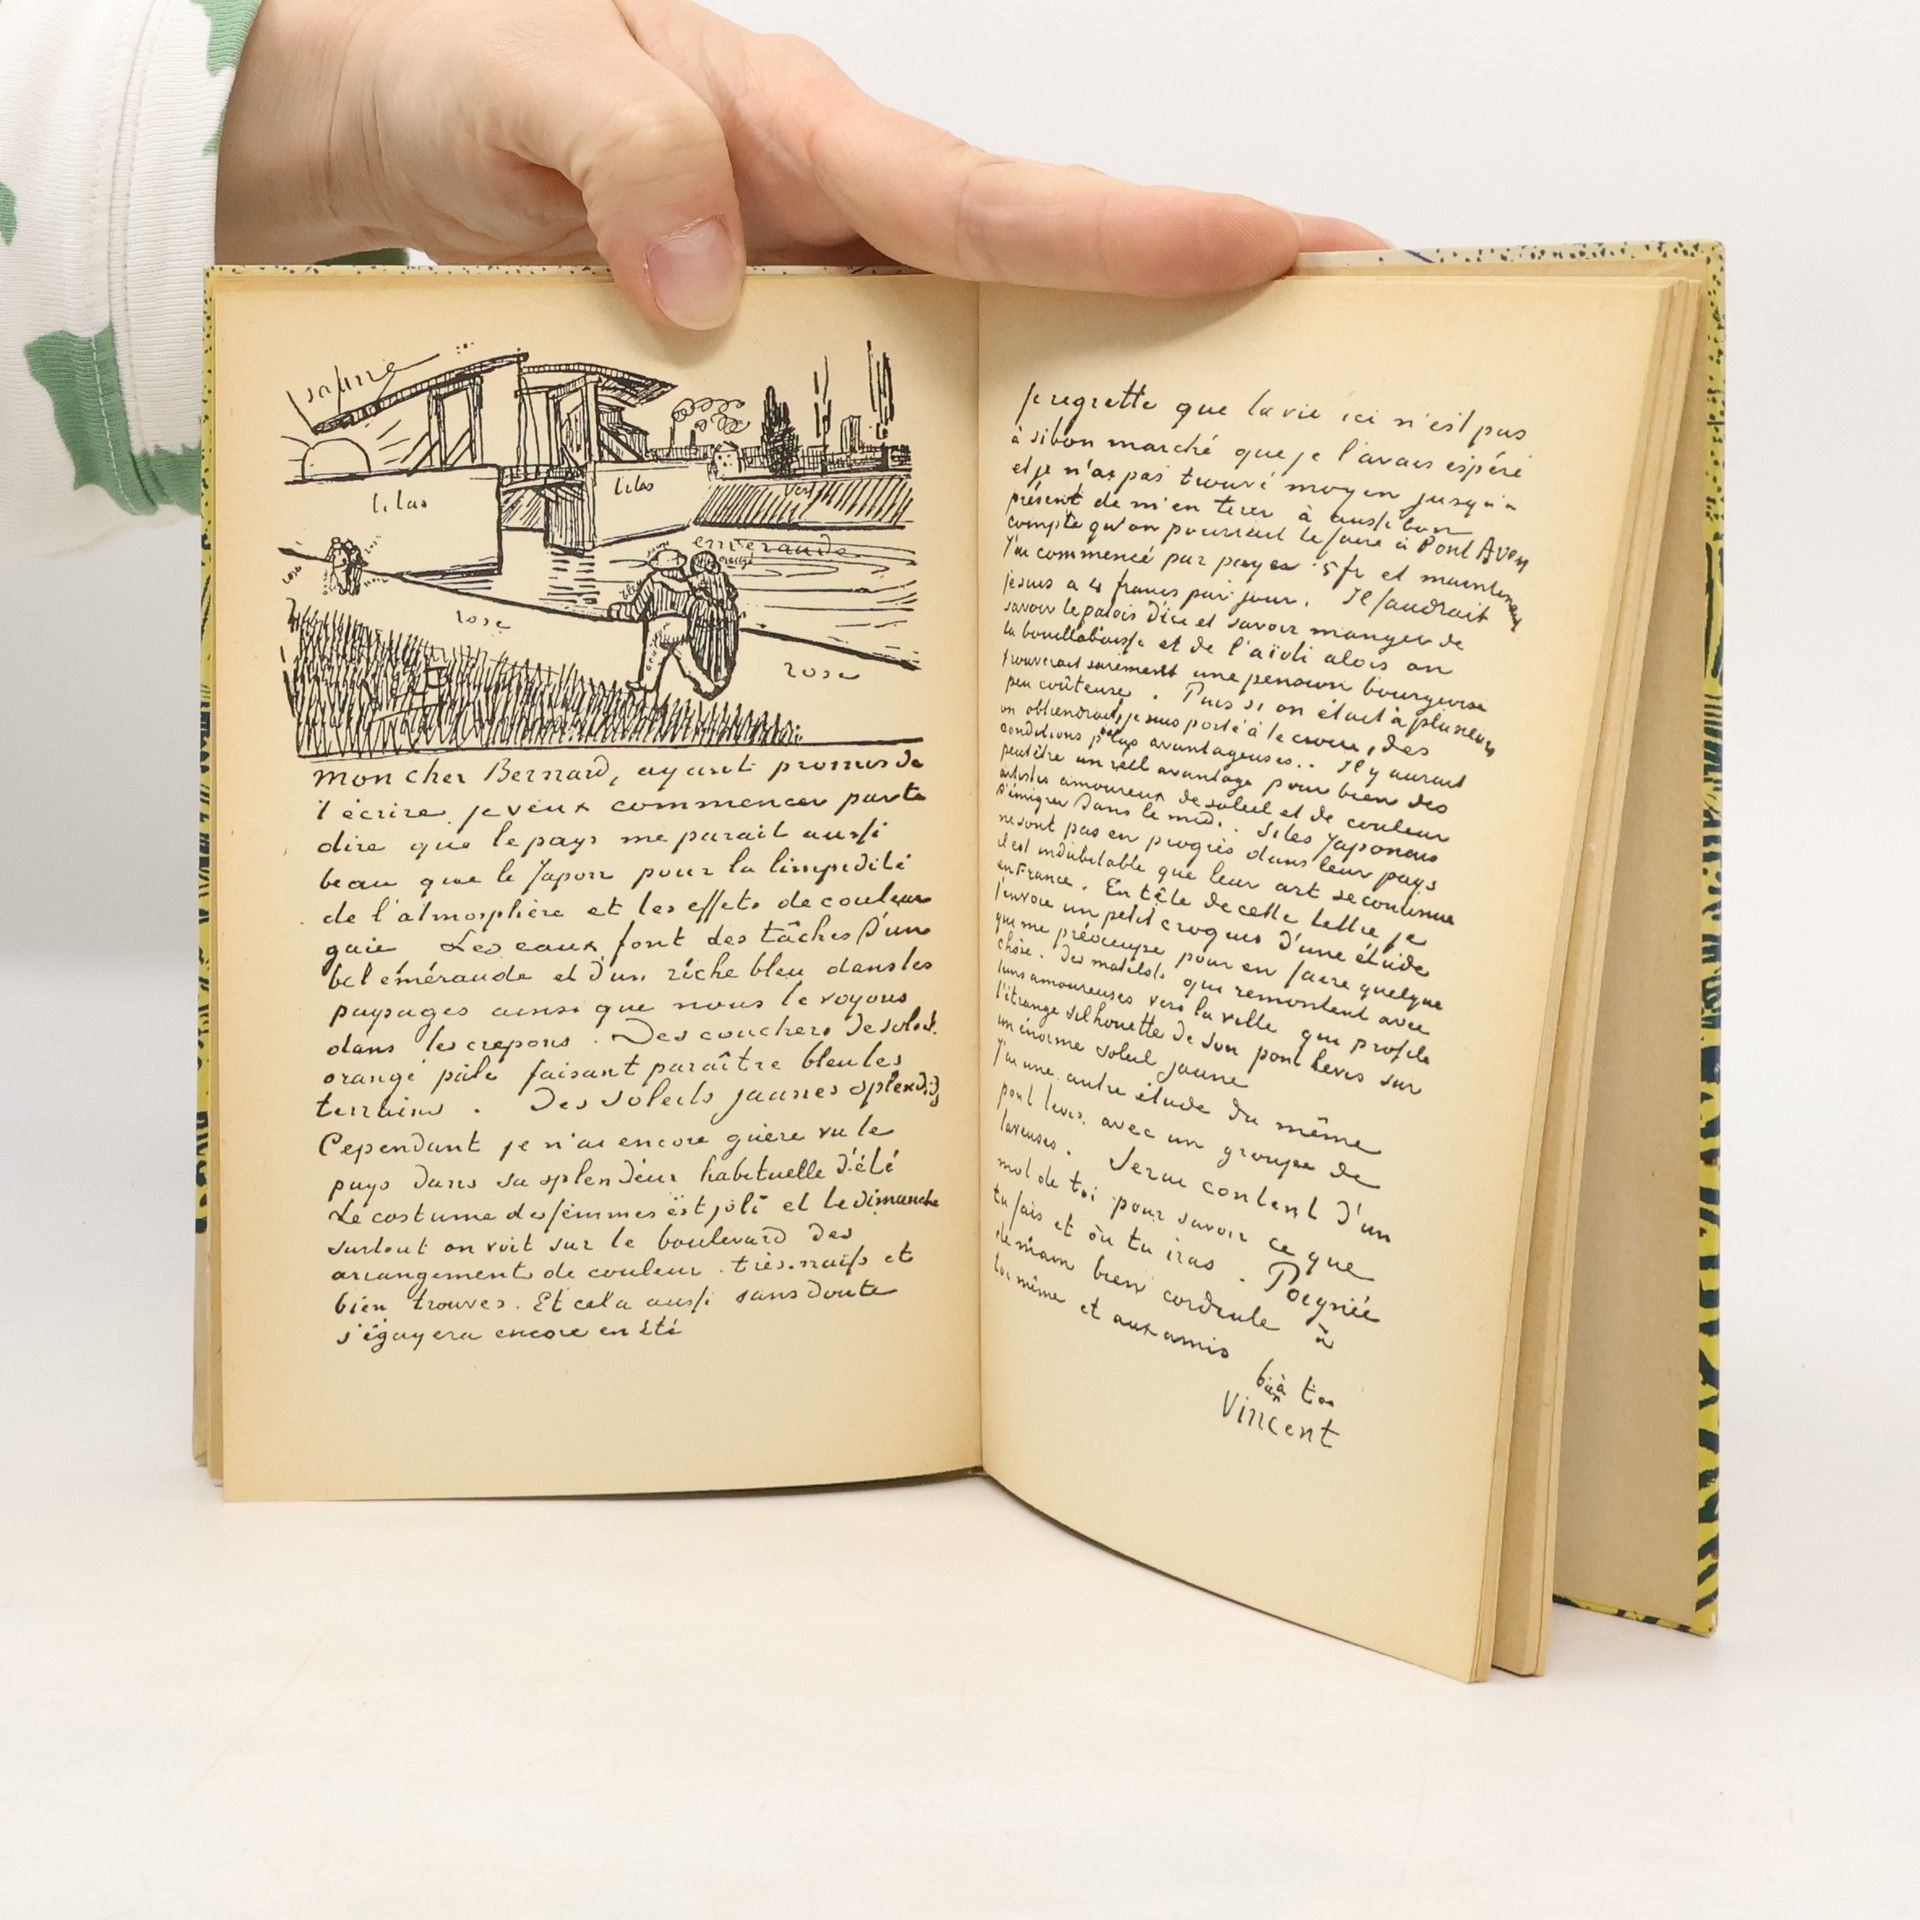 jaune
lilas
lilas
vert
émeraude
orangé
rose
rose
rose
mon cher Bernard, ayant promis de
t'écrire je veux commencer par te
dire que le pays me parait aussi
beau que le Japon pour la limpidité
de l'atmosphère et les effets de couleur
gaie Les eaux font des tâches d'un
bel éméraude et d'un riche bleu dans les
paysages ainsi que nous le voyons
dans les crepons. Des couchers de soleil
orangé pâle faisant paraître bleu les
terrains. Des soleils jaunes splendides
Cependant je n'ai encore guère vu le
pays dans sa splendeur habituelle d'été
Le costume des femmes est joli et le dimanche
surtout on voit sur le boulevard des
arrangements de couleur très naifs et
bien trouvés. Et cela aussi sans doute
s'égayera encore en été
je regrette que la vie ici n'est pas
à si bon marché que je l'avais espéré
et je n'ai pas trouvé moyen jusqu'à
présent de m'en tirer à aussi bon
compte qu'on pourrait le faire à Pont Aven
J'ai commencé par payer 5 fr et maintenant
je suis a 4 francs par jour. Il faudrait
savoir le patois d'ici et savoir manger de
la bouillabaisse et de l'aïoli alors on
trouverait surement une pension bourgeoise
peu coûteuse. Puis si on était à plusieurs
on obtiendrait, je suis porté à le croire, des
conditions plus avantageuses. Il y aurait
peut être un réel avantage pour bien des
artistes amoureux de soleil et de couleur
d'émigrer dans le midi. Si les Japonais
ne sont pas en progrès dans leur pays
il est indubitable que leur art se continue
en France. En tête de cette lettre je
t'envoie un petit croquis d'une étude
qui me préoccupe pour en faire quelque
chose. Des matelots qui remontent avec
leurs amoureuses vers la ville qui profile
l'étrange silhouette de son pont levis sur
un énorme soleil jaune
J'ai une autre étude du même
pont levis avec un groupe de
laveuses. Serai content d'un
mot de toi pour savoir ce que
tu fais et où tu iras. Poignée
de main bien cordiale à
toi même et aux amis
bien à toi
Vincent